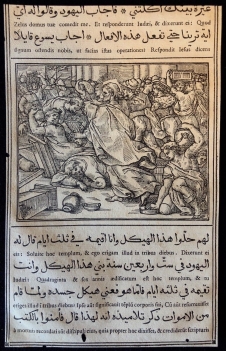 غيرة بيتك اكلتني * فاجاب اليهود وقالوا له اي
Zelus domus tuæ comedit me. Et responderunt Iudæi, & dixerunt ei: Quod
اية ترينا حتي تفعل هذه الافعال * اجاب يسوع قايلا
signum ostendis nobis, ut facias istas operationes? Respondit Iesus dicens
لهم حلوا هذا الهيكل وانا اقيمه في ثلثة ايام قال له
eis: Soluite hoc templum, & ego erigam illud in tribus diebus. Dixerunt ei
اليهود في ست واربعين سنة بني هذا الهيكل وانت
Iudæi: Quadraginta & sex annis ædificatum est hoc templum, & tu
تقيمه في ثلثة ايام فاما هو فعني هيكل جسده ولما قام
eriges illud ī tribus diebus? Ipse aūt significauit tēplū corporis sui. Cū aūt resurrexisset
من الاموات ذكر تلاميذه انه لهذا قال فامنوا بالكتب
à mortuis recordati sūt discipuli eius, quia propter hoc dixisset, & crediderūt scripturis